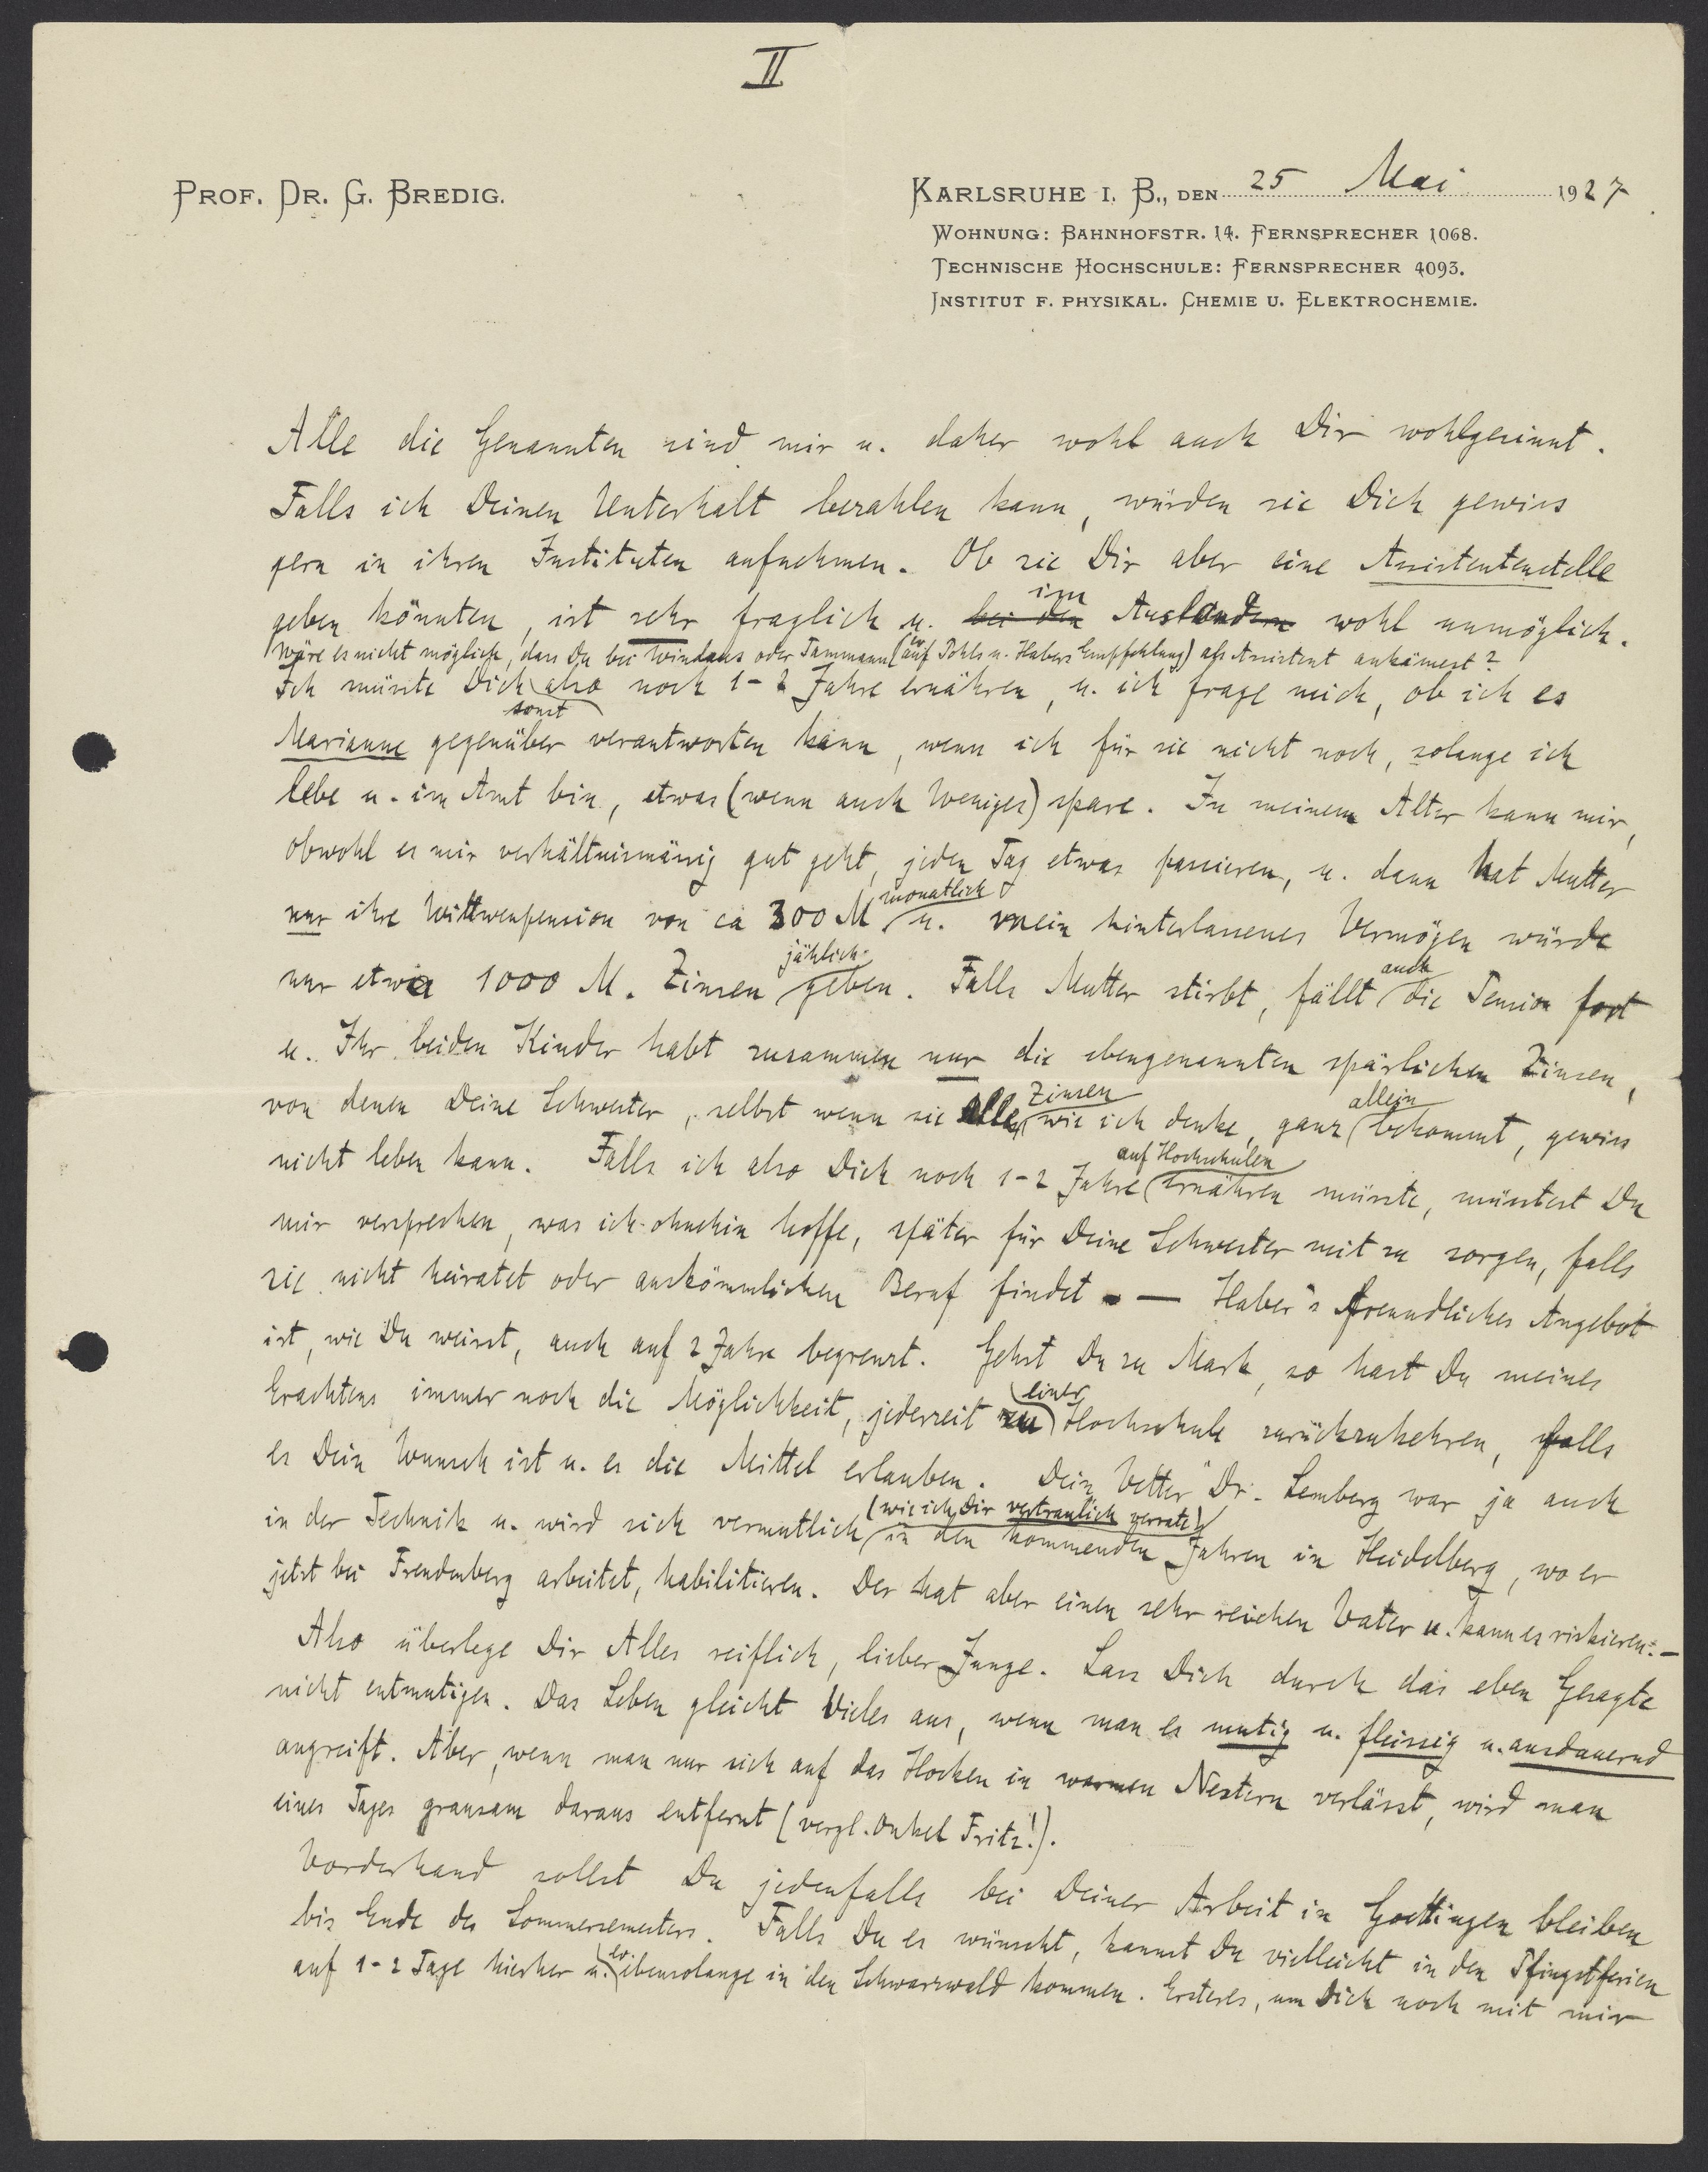 II
PROF. DR. G. BREDIG.
KARLSRUHE I. B., DEN 25 Mai 1927.
WOHNUNG: BAHNHOFSTR. 14. FERNSPRECHER 1068.
TECHNISCHE HOCHSCHULE: FERNSPRECHER 4093.
INSTITUT F. PHYSIKAL. CHEMIE U. ELEKTROCHEMIE.
Alle die Genannten sind mir u. daher wohl auch Dir wohlgesinnt.
Falls ich Deinen Unterhalt bezahlen kann, würden sie Dich gewiss
gern in ihren Instituten aufnehmen. Ob sie Dir aber eine Assistentenstelle
im
geben könnten, ist sehr fraglich u. bei den Ausländern wohl unmöglich.
Wäre es nicht möglich, dass Du bei Windaus oder Tammann (ev. auf Pohls u. Habers Empfehlung) als Assistent ankämest?
Ich müsste Dich also noch 1-2 Jahre ernähren, u. ich frage mich, ob ich es
sonst
Marianne gegenüber verantworten kann, wenn ich für sie nicht noch, solange ich
lebe u. im Amt bin, etwas (wenn auch Weniges) spare. In meinem Alter kann mir,
obwohl es mir verhältnismässig gut geht, jeden Tag etwas passieren, u. dann hat Mutter
monatlich
nur ihre Wittwenpension von ca 300 M u. mein hinterlassenes Vermögen würde
jählich auch
nur etwa 1000 M. Zinsen geben. Falls Mutter stirbt, fällt die Pension fort
u. Ihr beiden Kinder habt zusammen nur die ebengenannten spärlichen Zinsen,
Zinsen allein
von denen Deine Schwester, selbst wenn sie alle, wie ich denke, ganz bekommt, gewiss
auf Hochschulen
nicht leben kann. Falls ich also Dich noch 1-2 Jahre ernähren müsste, müsstest Du
mir versprechen, was ich ohnehin hoffe, später für Deine Schwester mit zu sorgen, falls
sie nicht heiratet oder auskömmlichen Beruf findet. — Haber's freundliches Angebot
ist, wie Du weisst, auch auf 2 Jahre begrenzt. Gehst Du zu Mark, so hast Du meines
einer
Erachtens immer noch die Möglichkeit, jederzeit zu Hochschule zurückzukehren, falls
es Dein Wunsch ist u. es die Mittel erlauben. Dein Vetter Dr. Lemberg war ja auch
(wie ich Dir vertraulich verrate)
in der Technik u. wird sich vermutlich in den kommenden Jahren in Heidelberg, wo er
jetzt bei Freudenberg arbeitet, habilitieren. Der hat aber einen sehr reichen Vater u. kann es riskieren. —
Also überlege Dir Alles reiflich, lieber Junge. Lass Dich durch das eben Gesagte
nicht entmutigen. Das Leben gleicht Vieles aus, wenn man es mutig u. fleissig u. ausdauernd
angreift. Aber, wenn man nur sich auf das Hocken in warmen Nestern verlässt, wird man
eines Tages grausam daraus entfernt (vergl. Onkel Fritz!).
Vorderhand sollst Du jedenfalls bei Deiner Arbeit in Goettingen bleiben
bis Ende des Sommersemesters. Falls Du es wünscht, kannst Du vielleicht in den Pfingstferien
ev.
auf 1-2 Tage hierher u. ebensolange in den Schwarzwald kommen. Ersteres, um Dich noch mit mir